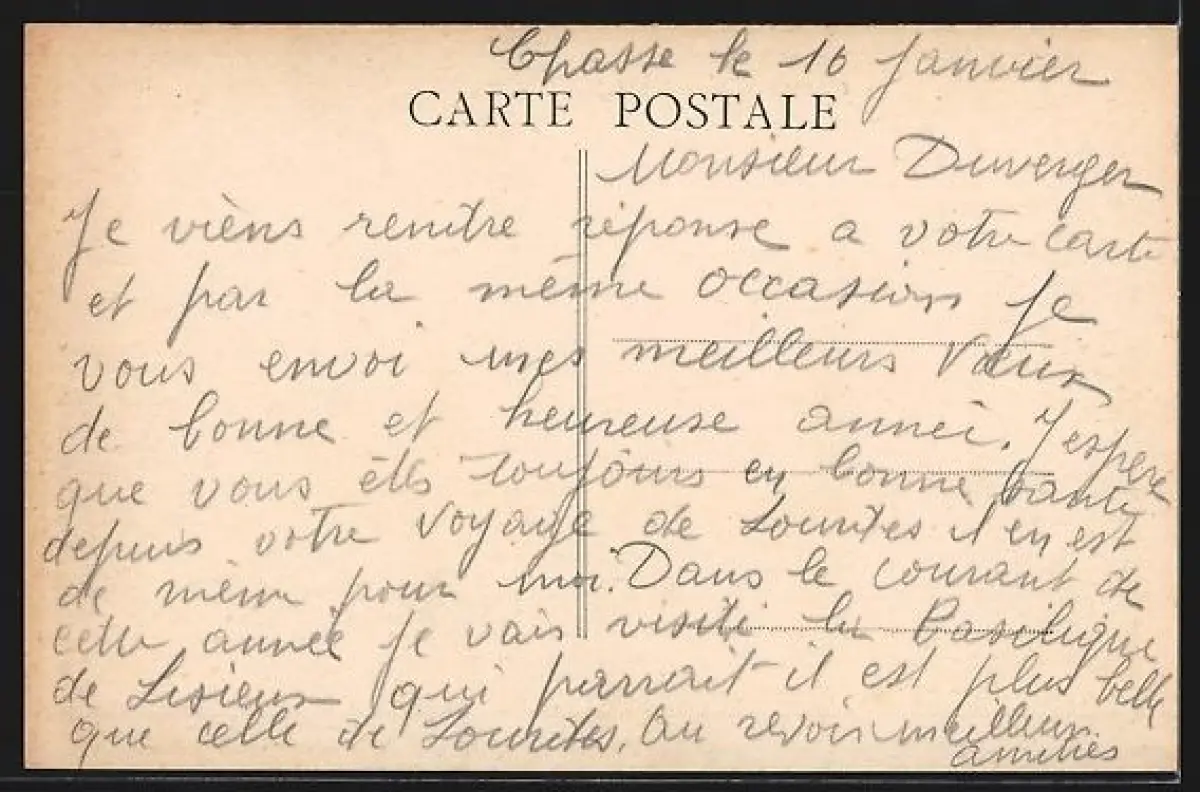 Chasse le 16 janvier
CARTE POSTALE
Monsieur Duverger
Je viens rendre réponse a votre carte
et par la même occasion je
vous envoi mes meilleurs vœux
de bonne et heureuse année. J'espère
que vous êtes toujours en bonne santé
depuis votre voyage de Lourdes il en est
de même pour moi. Dans le courant de
cette année je vais visité la Basilique
de Lisieux qui parrait il est plus belle
que celle de Lourdes. Au revoir meilleurs
amitiés